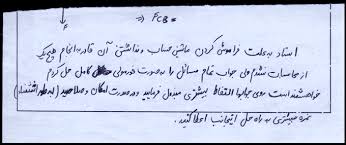 F   (=> F_CB =
استاد به علت فراموش کردن ماشین حساب و نداشتن آن قادر به انجام هیچیک
از محاسبات نشدم ولی جواب تمام مسائل را به صورت فرمولی کامل حل کردم
خواهشمند است روی جوابها التفاط بیشتری مبذول فرمایید و در صورت امکان و صلاحدید (به طور استثناء)
نمره بیشتری به راه حل اینجانب اعطا کنید.